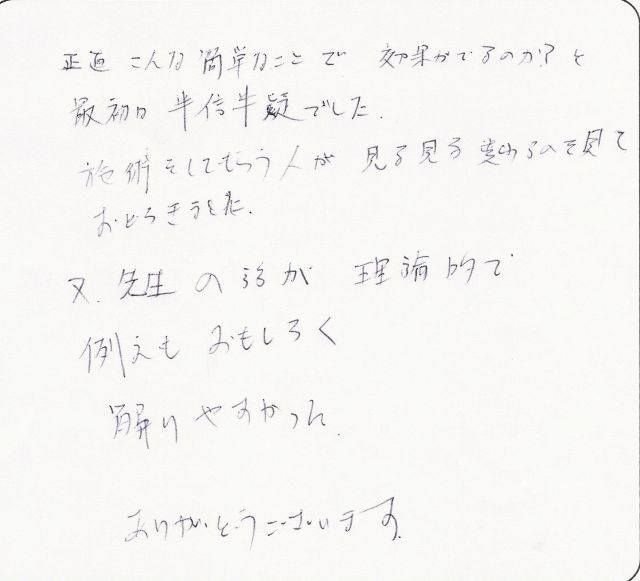 正直 こんな簡単なことで 効果がでるのか?と
最初は 半信半疑でした.
施術をしてもらう人が 見る見る変わるのを見て
おどろきました.
又、先生の話が 理論的で
例えも おもしろく
解りやすかった.
ありがとうございます.